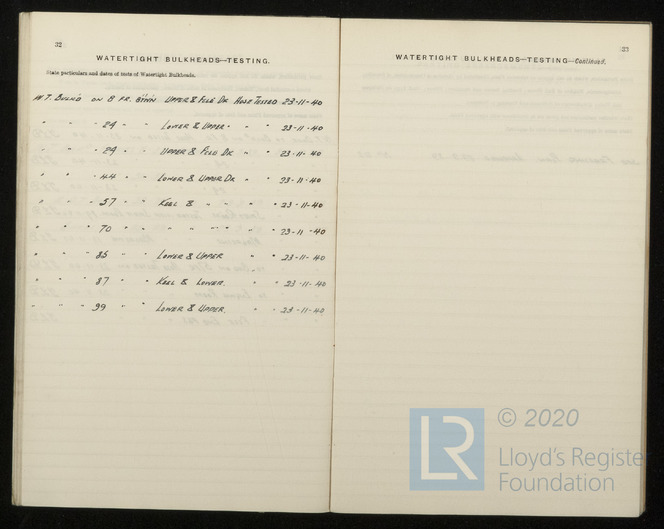 32
WATERTIGHT BULKHEADS—TESTING.
State particulars and dates of tests of Watertight Bulkheads.
W.T. BULK'D ON 8 FR. BTWN UPPER & FCLE DK HOSE TESTED 23-11-40
" " " 29 " " LOWER & UPPER " " " 23-11-40
" " " 29 " " UPPER & FCLE DK " " 23-11-40
" " " 44 " " LOWER & UPPER DK " " 23-11-40
" " " 57 " " KEEL & " " " " 23-11-40
" " " 70 " " " " " " " " 23-11-40
" " " 85 " " LOWER & UPPER " " 23-11-40
" " " 87 " " KEEL & LOWER. " " 23-11-40
" " " 99 " " LOWER & UPPER. " " 23-11-40
33
WATERTIGHT BULKHEADS—TESTING—Continued.
LR
© 2020
Lloyd's Register
Foundation